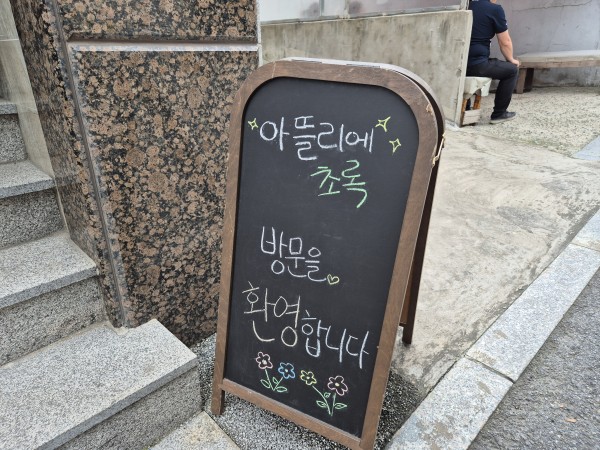 아뜰리에
초록
방문을
환영합니다